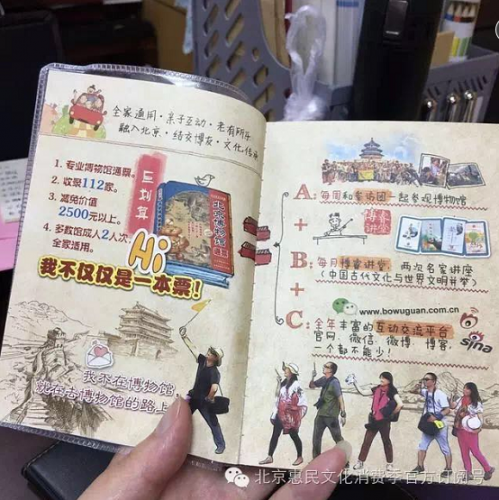 全家通用·亲子互动·老有所乐
融入北京·结交博友·文化传承
1. 专业博物馆通票。
2. 收录112家。
3. 减免价值
2500元以上。
4. 多数馆成人2人次，
全家适用。
巨划算
北京博物馆
通票
Hi
我不仅仅是一本票！
我不在博物馆，
就在去博物馆的路上
A：每周和睿博团一起参观博物馆
博睿
讲堂
+
B：每月博睿讲堂，两次名家讲座
（中国古代文化与世界文明并举）
+
www.bowuguan.com.cn
C：全年丰富的互动交流平台
官网、微信、微博、博客，
一个都不能少！
sina
北京惠民文化消费季官方订阅号